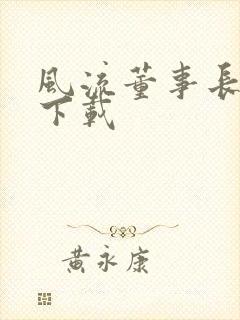 風流董事長
下載
黃永康